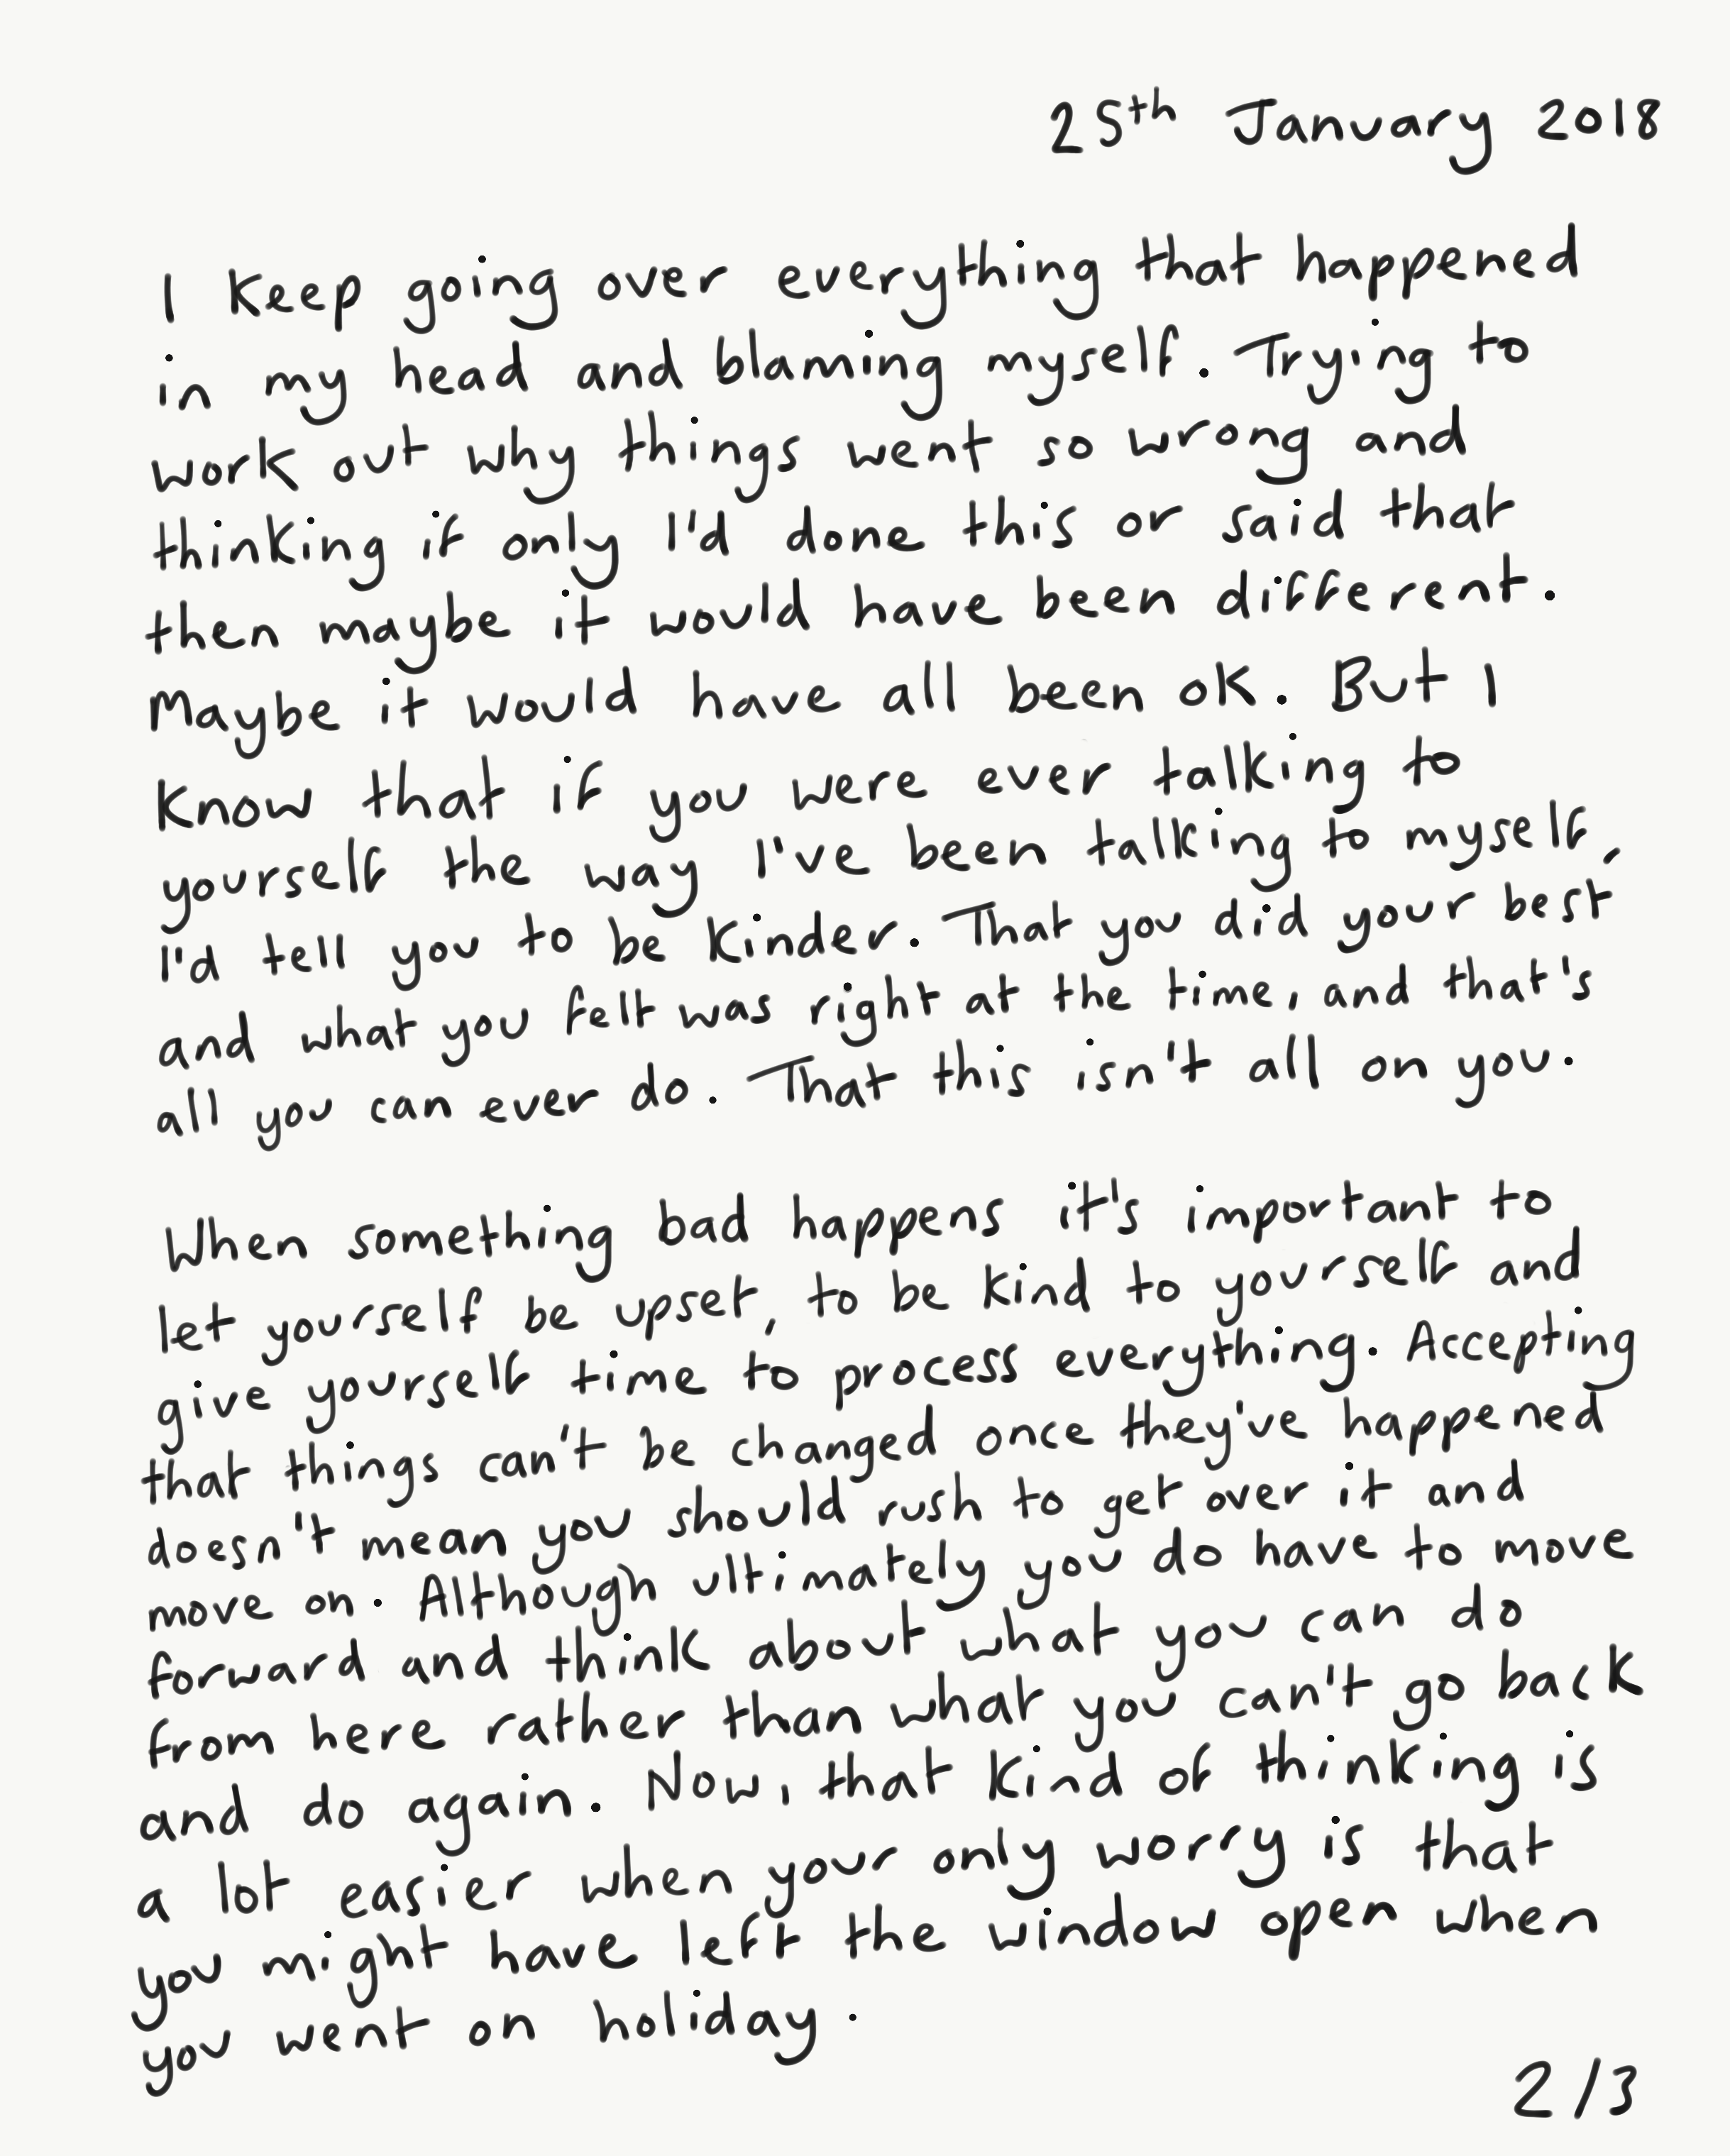 25th January 2018
I keep going over everything that happened
in my head and blaming myself. Trying to
work out why things went so wrong and
thinking if only I'd done this or said that
then maybe it would have been different.
Maybe it would have all been ok. But I
know that if you were ever talking to
yourself the way I've been talking to myself,
I'd tell you to be kinder. That you did your best
and what you felt was right at the time, and that's
all you can ever do. That this isn't all on you.
When something bad happens it's important to
let yourself be upset, to be kind to yourself and
give yourself time to process everything. Accepting
that things can't be changed once they've happened
doesn't mean you should rush to get over it and
move on. Although ultimately you do have to move
forward and think about what you can do
from here rather than what you can't go back
and do again. Now, that kind of thinking is
a lot easier when your only worry is that
you might have left the window open when
you went on holiday.
2/3